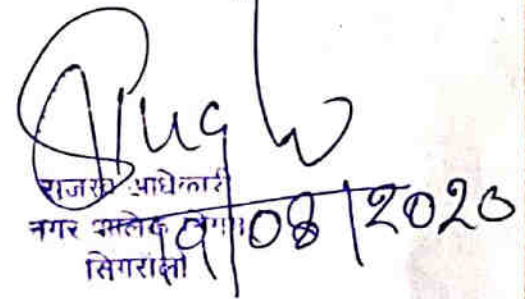 राजस्व अधिकारी
नगर पालिक निगम
सिंगरौली
19/08/2020